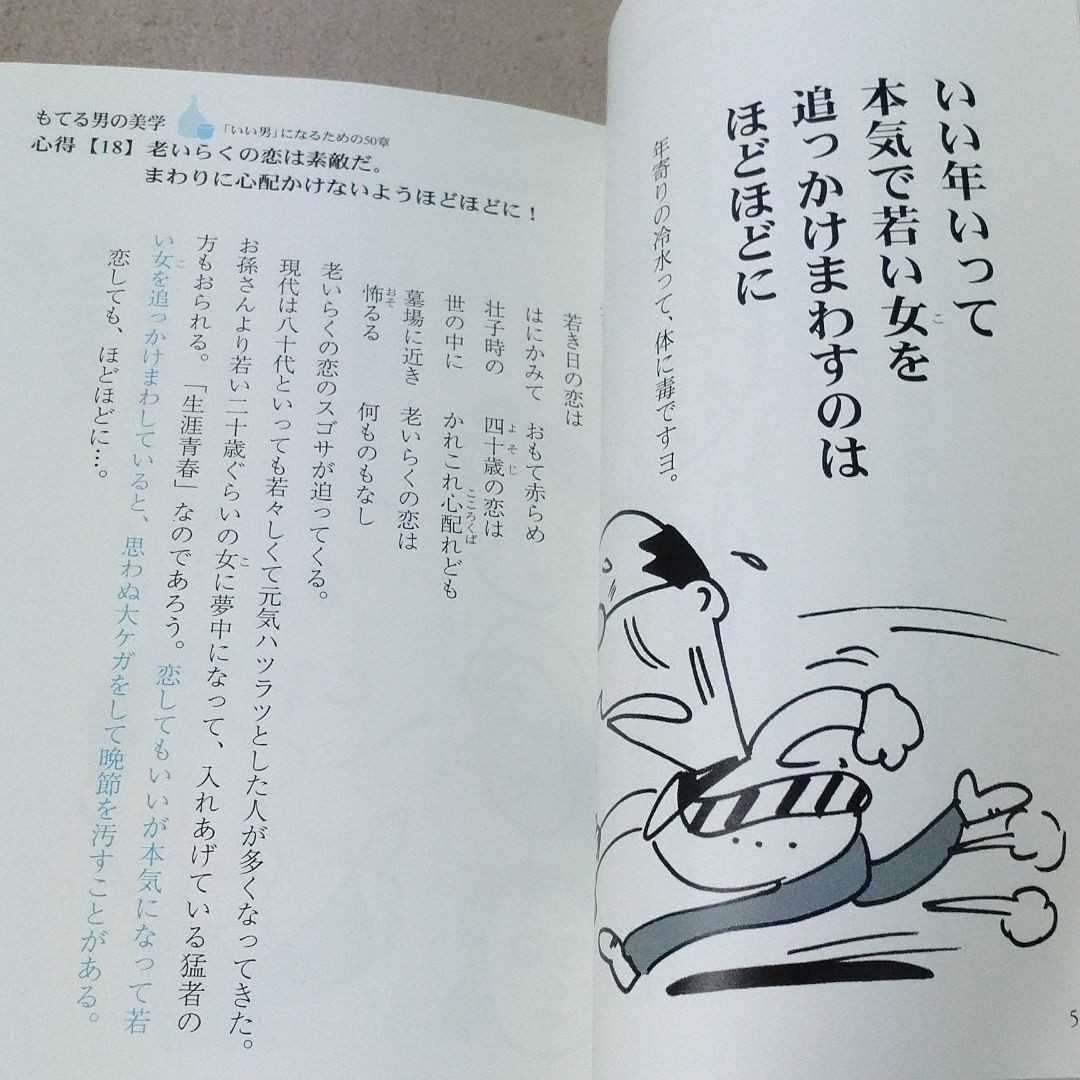 いい年いって
本気で若い女を
こ
追っかけまわすのは
ほどほどに
年寄りの冷水って、体に毒ですヨ。
5
もてる男の美学
「いい男」になるための50章
心得【18】老いらくの恋は素敵だ。
まわりに心配かけないようほどほどに!
若き日の恋は
はにかみて おもて赤らめ
壮子時の 四十歳の恋は
よそじ
世の中に かれこれ心配れども
こころくば
墓場に近き 老いらくの恋は
怖るる 何ものもなし
おそ
老いらくの恋のスゴサが迫ってくる。
現代は八十代といっても若々しくて元気ハツラツとした人が多くなってきた。
お孫さんより若い二十歳ぐらいの女に夢中になって、入れあげている猛者の
こ
方もおられる。「生涯青春」なのであろう。恋してもいいが本気になって若
い女を追っかけまわしていると、思わぬ大ケガをして晩節を汚すことがある。
こ
恋しても、ほどほどに…。